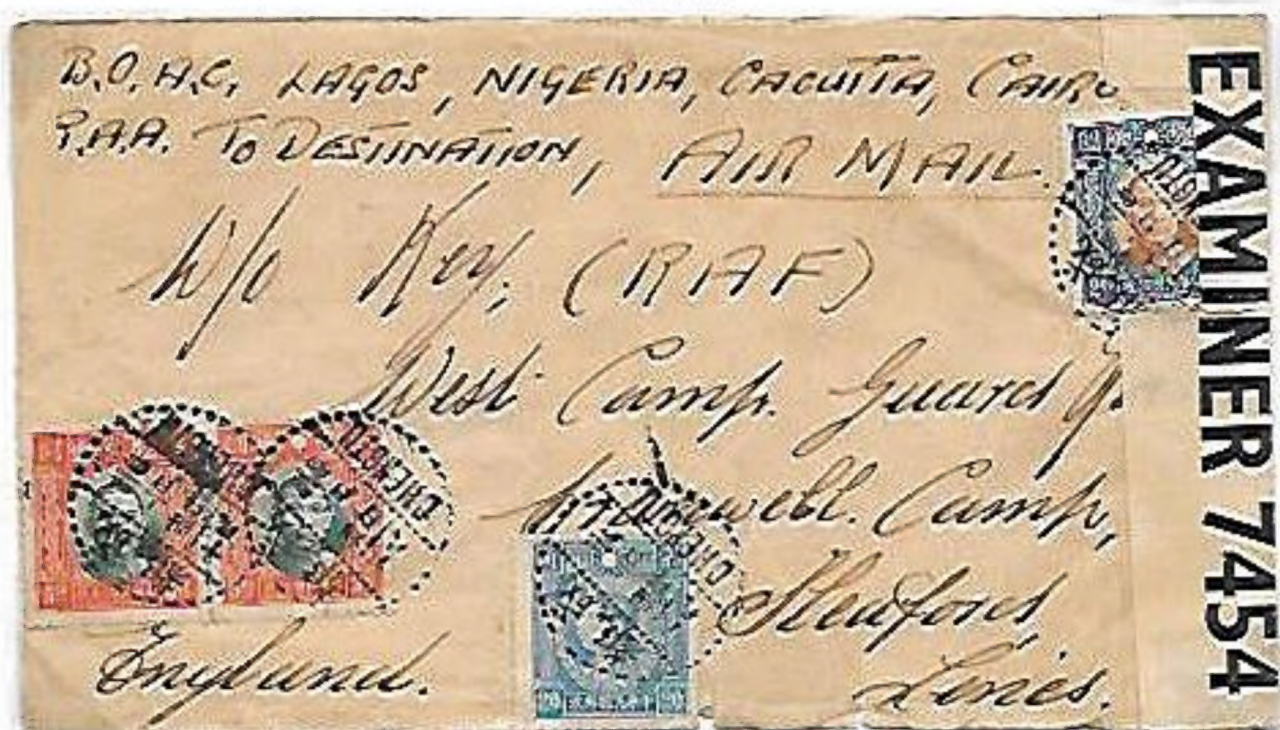 B.O.A.C. LAGOS, NIGERIA, CACUTTA, CAIRO
P.A.A. TO DESTINATION, AIR MAIL.
W/O Key, (RAF)
West Camp. Guard
Cranwell. Camp,
Sleaford,
Lincs.
England.
EXAMINER 7454
CHENGTU